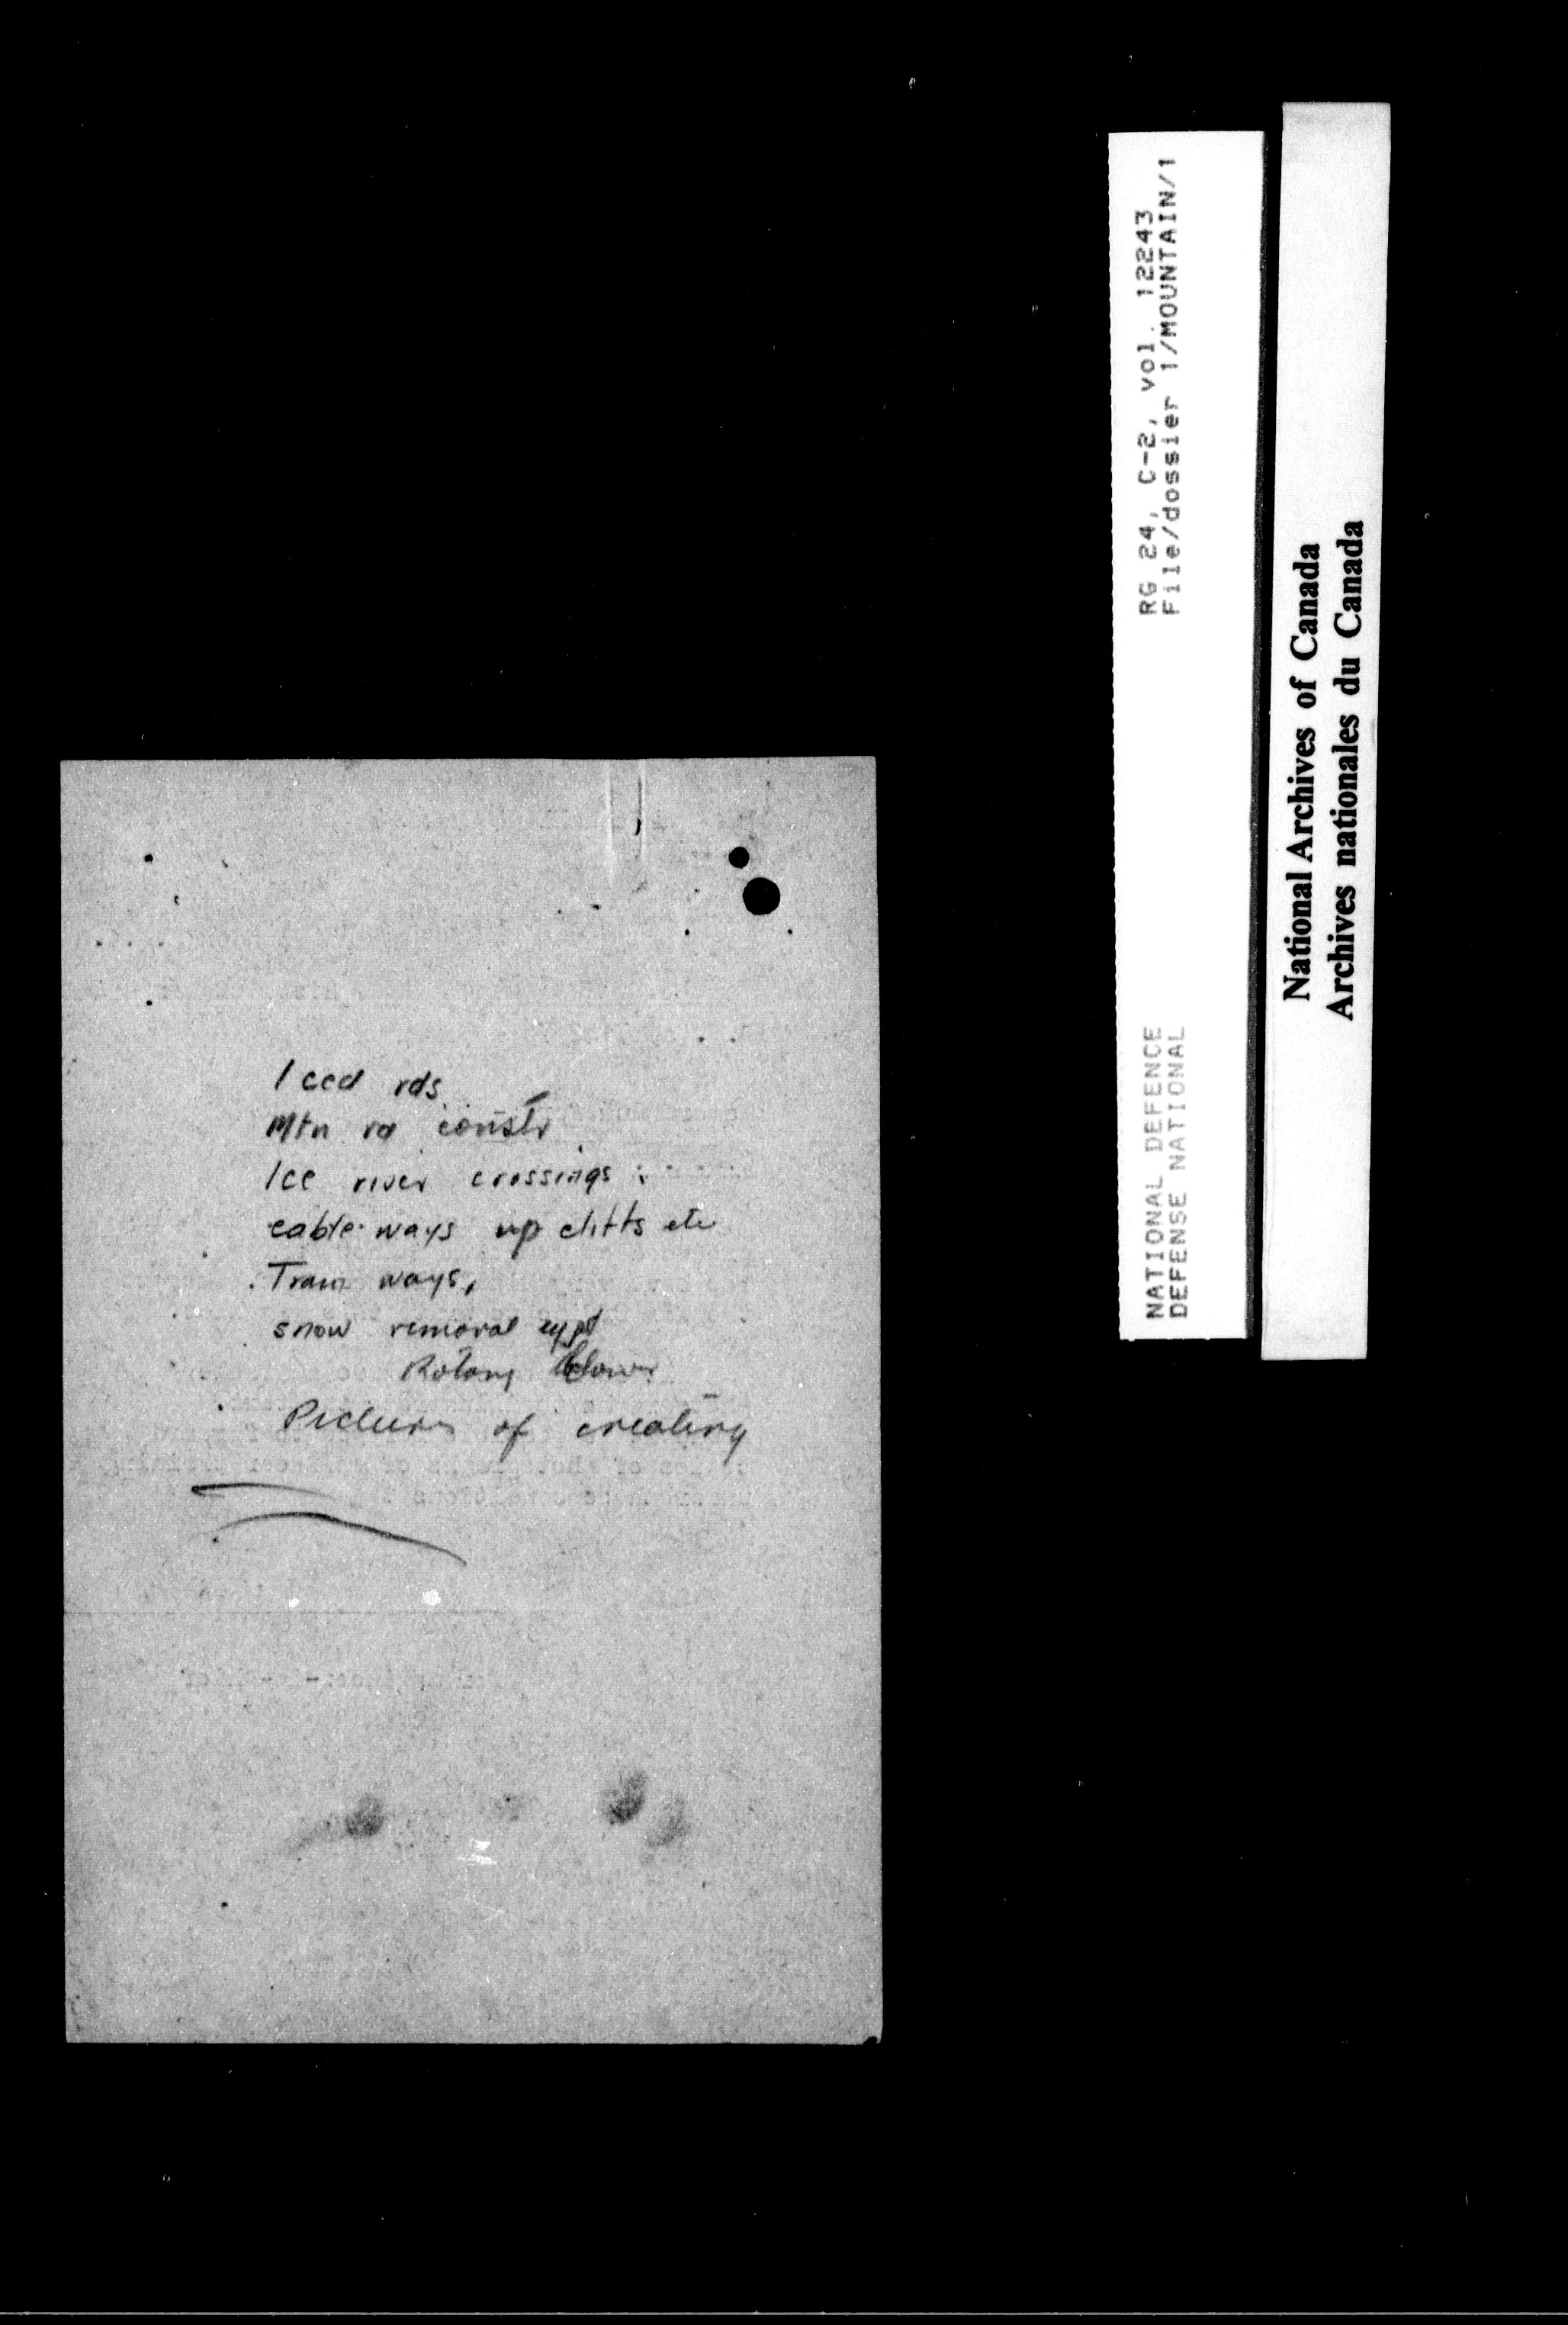 Iced rds
Mtn rd constr
Ice river crossings
cable ways up cliffs etc
Tram ways,
snow removal eqpt
Rotary blower
Pictures of creating
RG 24, C-2, vol. 12243
File/dossier 1/MOUNTAIN/1
NATIONAL DEFENCE
DEFENSE NATIONAL
National Archives of Canada
Archives nationales du Canada